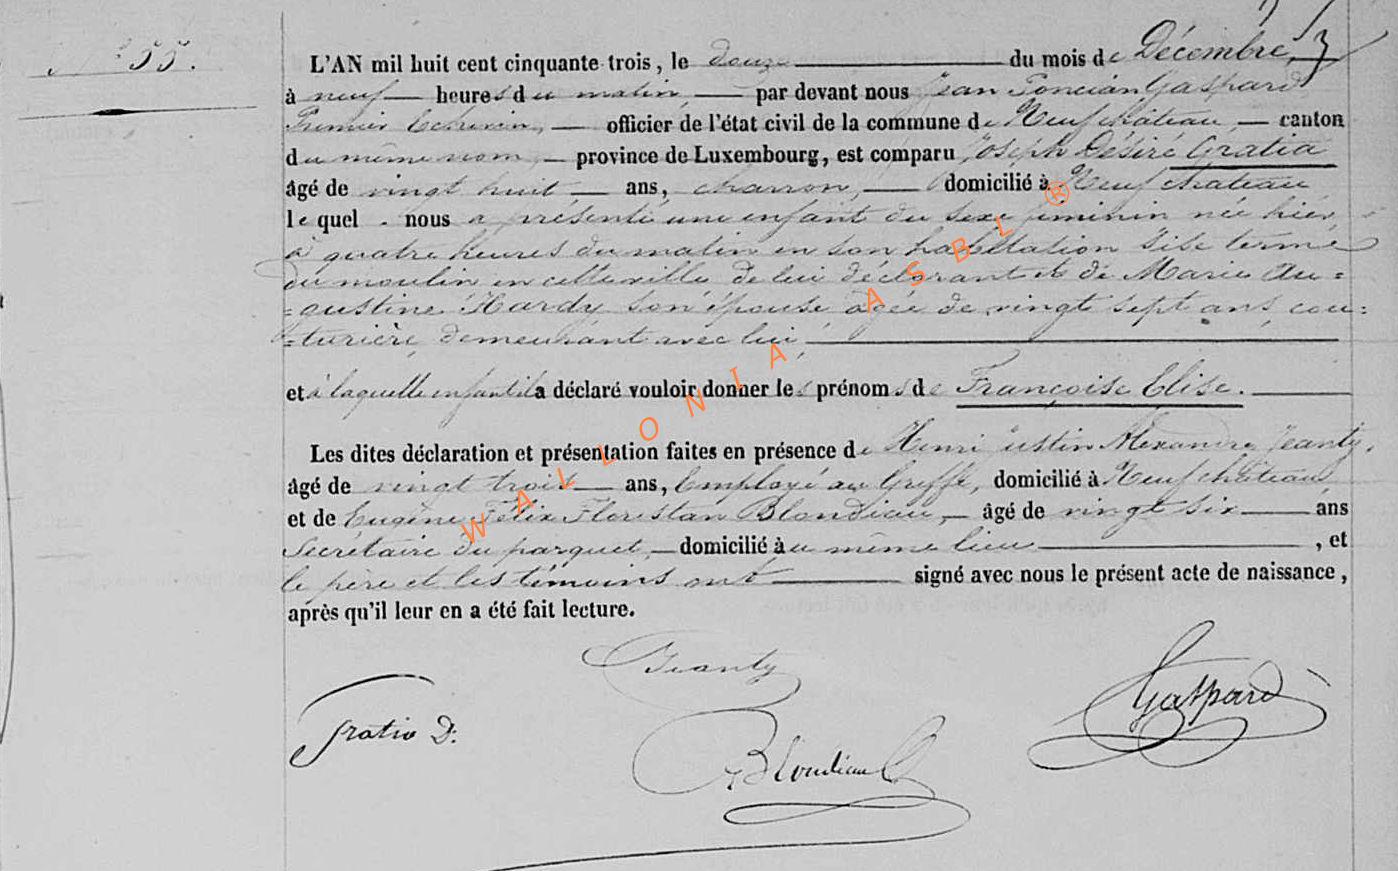 N° 55.
L'AN mil huit cent cinquante trois, le douze du mois de Décembre,
à neuf heures du matin, par devant nous Jean Poncian Gaspard
Premier Echevin, officier de l'état civil de la commune de Neufchâteau, canton
du même nom, province de Luxembourg, est comparu Joseph Désiré Gratia
âgé de vingt huit ans, charron, domicilié à Neufchateau
lequel nous a présenté une enfant du sexe féminin née hier
à quatre heures du matin en son habitation sise terme
du moulin en cette ville de lui déclarant et de Marie Au=
=gustine Hardy son épouse agée de vingt sept ans, cou=
=turière, demeurant avec lui,
et à laquelle enfant il a déclaré vouloir donner les prénoms de Françoise Elise.
Les dites déclaration et présentation faites en présence de Henri Justin Alexandre Jeanty,
âgé de vingt trois ans, Employé au Greffe, domicilié à Neufchâteau
et de Eugène Félix Floristan Blondiau, âgé de vingt six ans
Secrétaire du parquet, domicilié au même lieu, et
le père et les témoins ont signé avec nous le présent acte de naissance,
après qu'il leur en a été fait lecture.
Jeanty
Gratia D.
Gaspard
Blondiau
WALLONIA ASBL ®